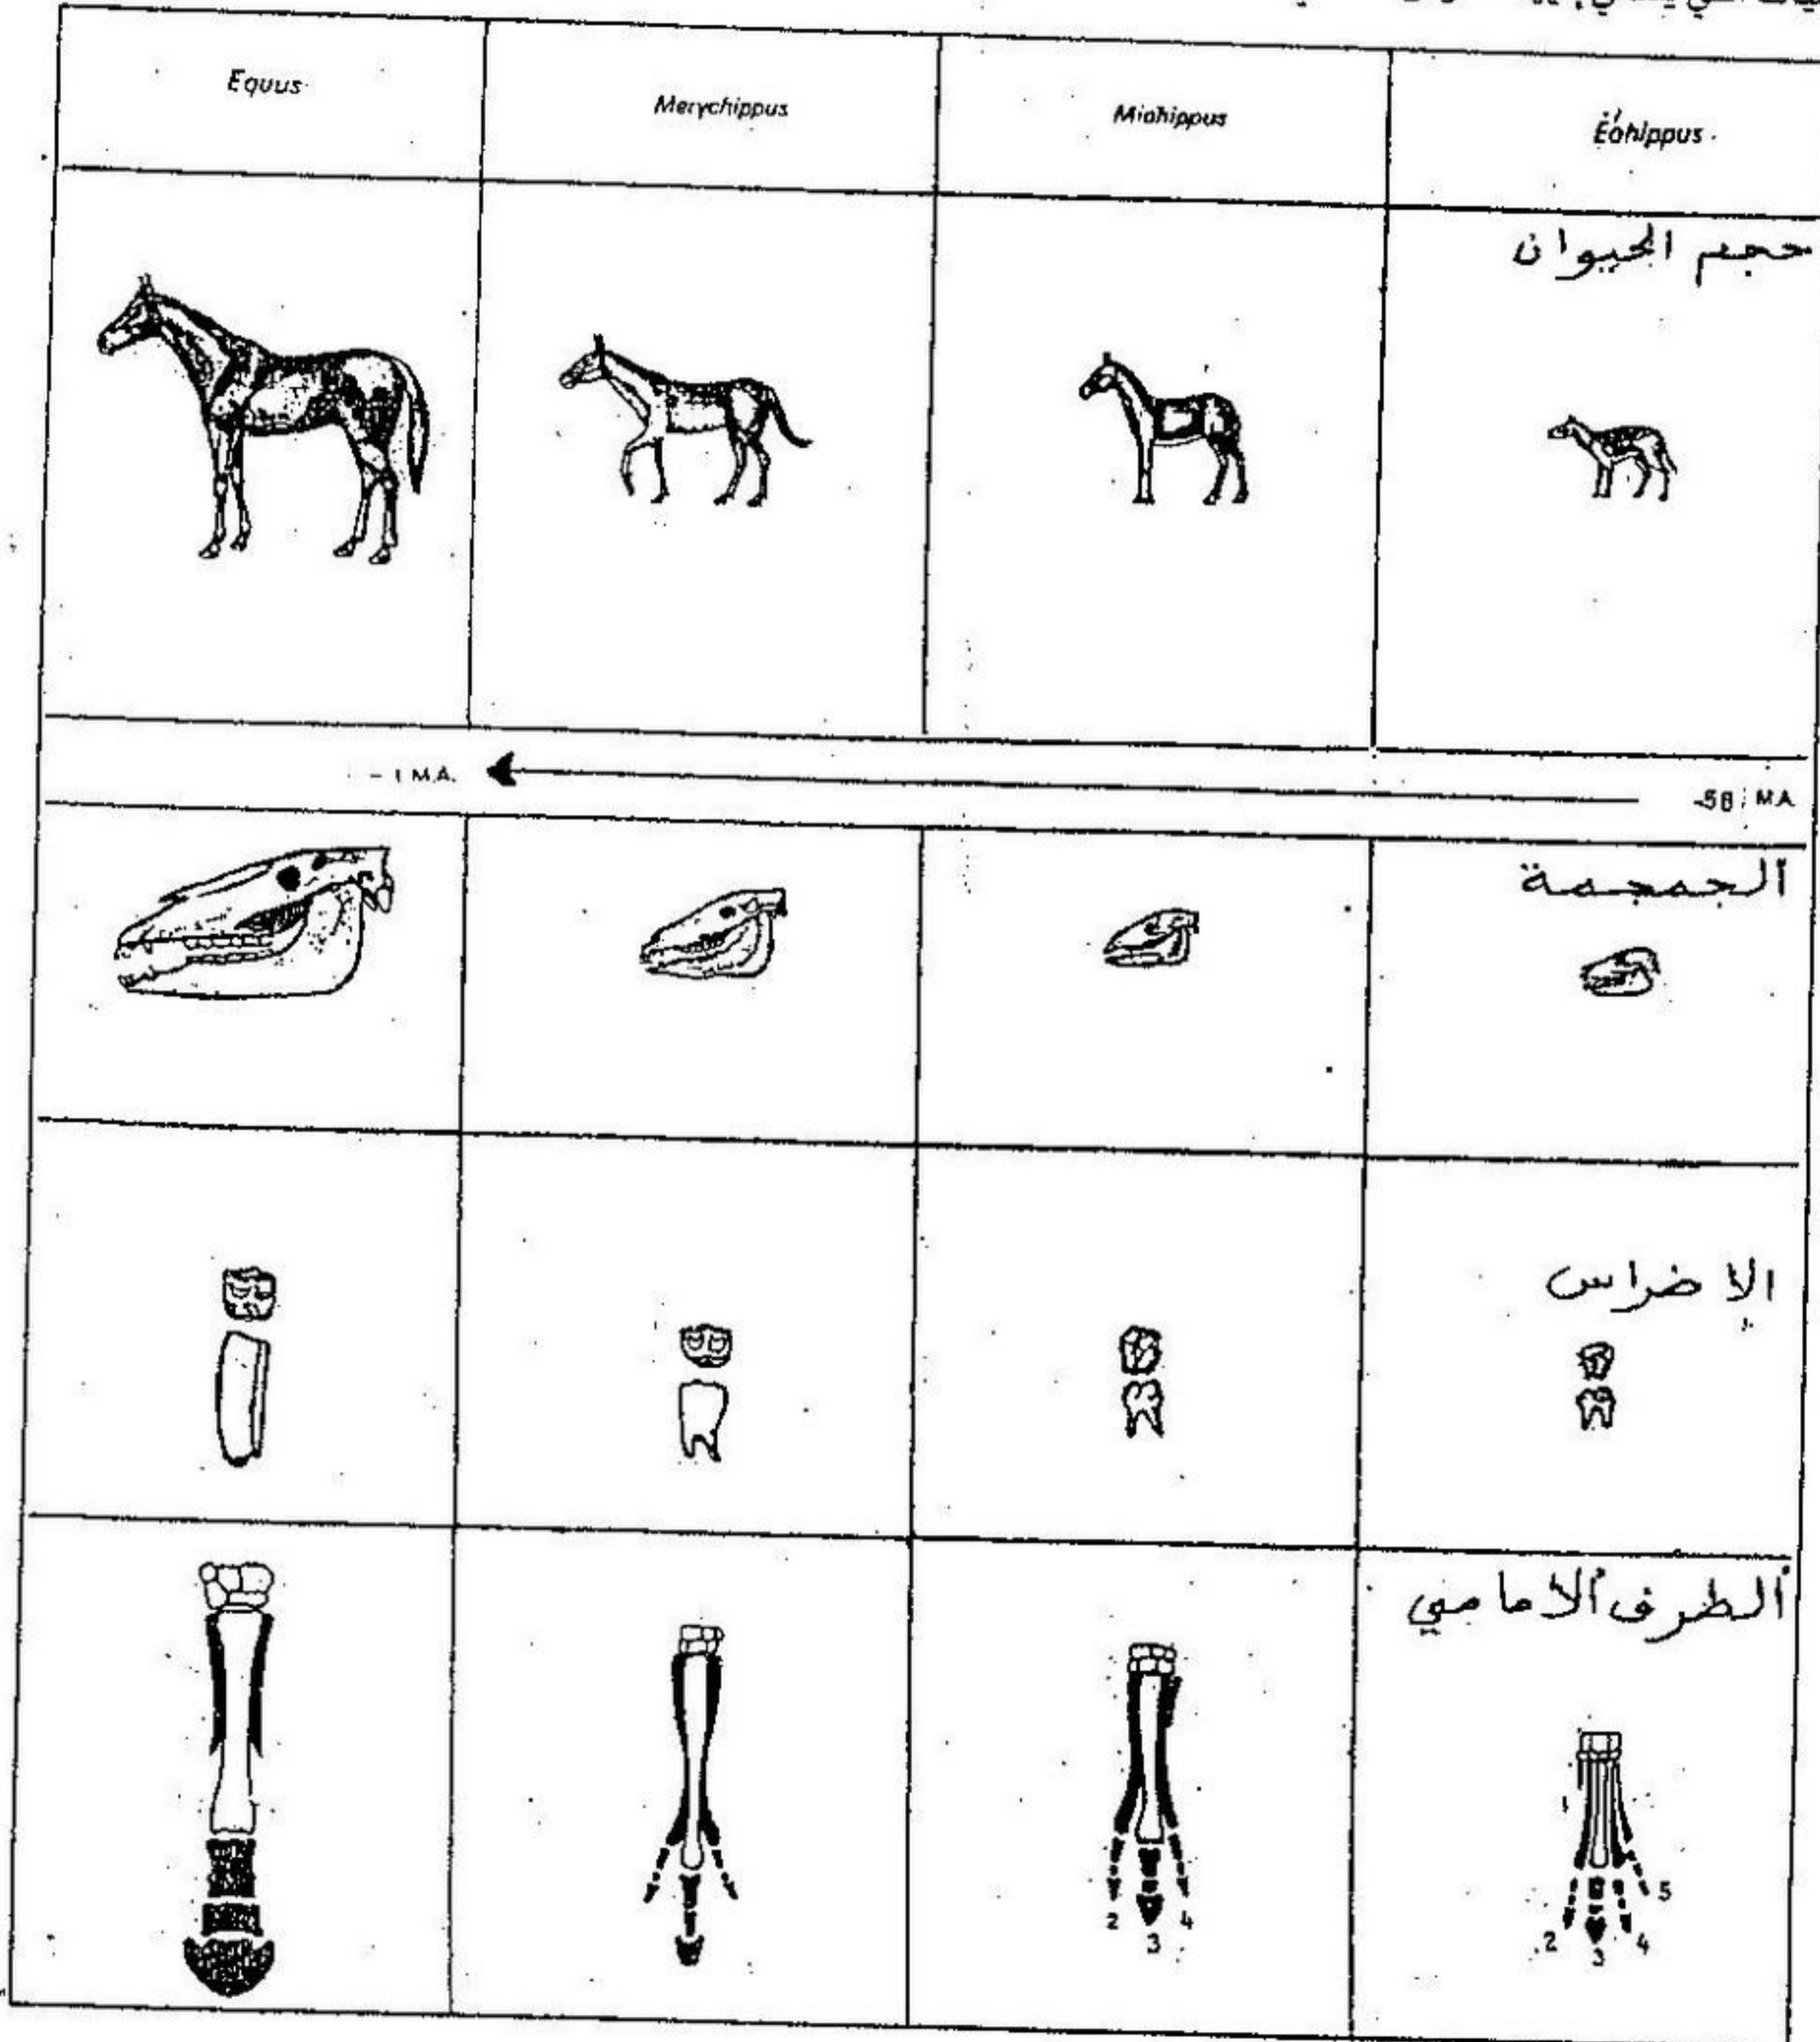 Equus
Merychippus
Miohippus
Eohippus
حجم الحيوان
- 1 M.A.
-58 M.A.
الجمجمة
الاضراس
الطرف الأمامي
1
2
3
4
5
2
3
4